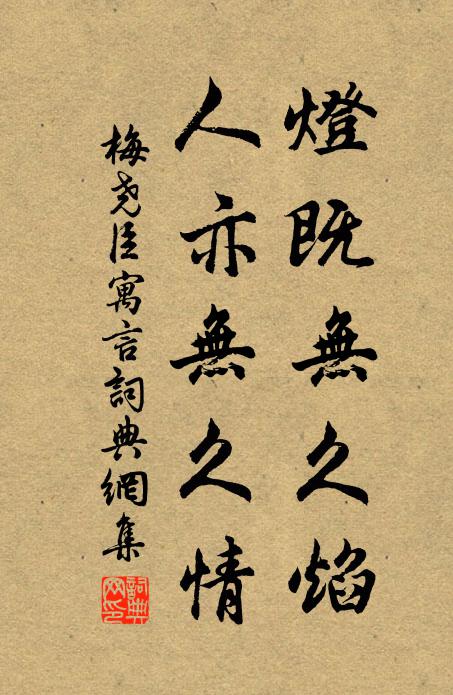 燈既無久焰
人亦無久情
梅堯臣寓言詞典網集
詞典網印